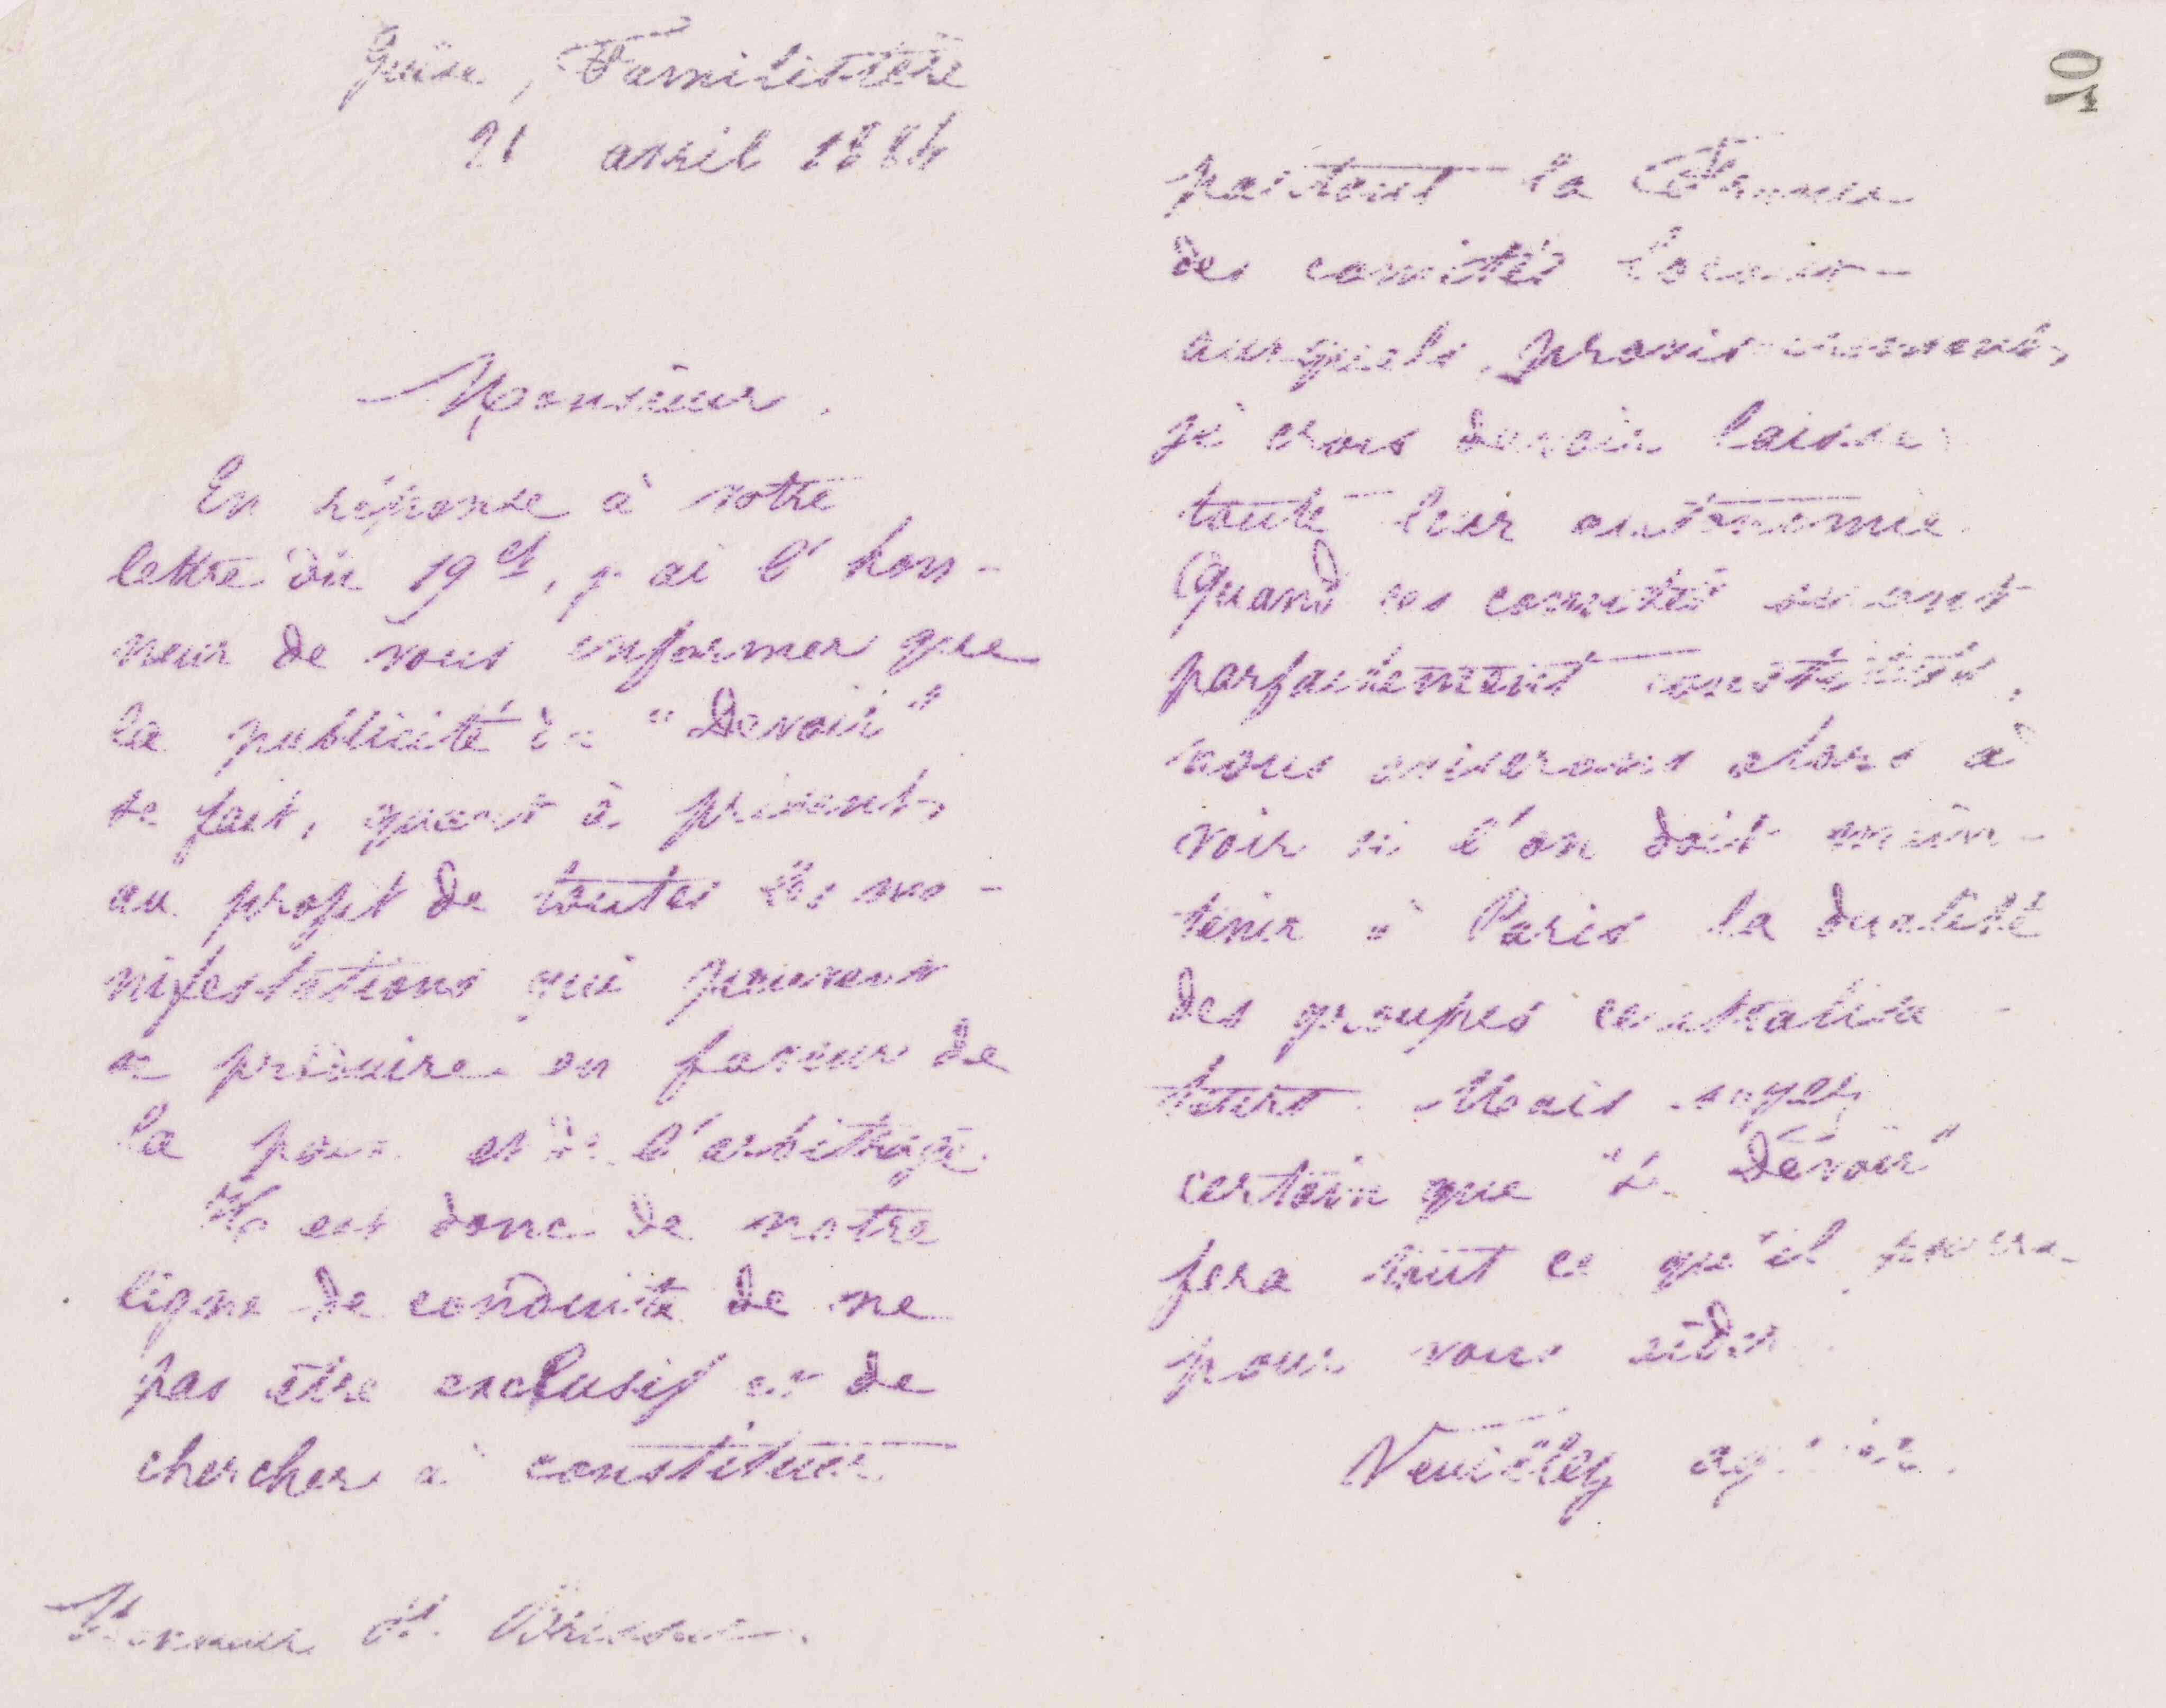 Guise, Familistère
21 avril 1884
Monsieur.
En réponse à votre
lettre du 19 ct, j'ai l'hon-
neur de vous informer que
la publicité du "Devoir"
se fait, quant à présent,
au profit de toutes les ma-
nifestations qui peuvent
se produire en faveur de
la paix et de l'arbitrage.
Il est donc de notre
ligne de conduite de ne
pas être exclusif et de
chercher à constituer
Monsieur H. Brisson.
10
partout la France
des comités locaux
auxquels, provisoirement,
je crois devoir laisser
toute leur autonomie.
Quand ces comités seront
parfaitement constitués,
nous aviserons alors à
voir si l'on doit main-
tenir à Paris la dualité
des groupes centralisa-
teurs. Mais soyez
certain que "Le Devoir"
fera tout ce qu'il pourra
pour vous aider.
Veuillez agréer.